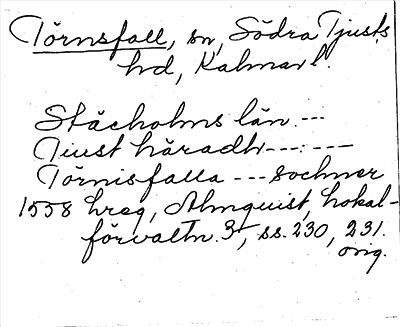 Törnsfall, sn, Södra Tjusts
hd, Kalmar l.
Stächolms län ---
Tiust häradh --- : ---
Törnisfalla --- sochner
1558 hreg, Almquist, Lokal-
förvaltn. 3, ss. 230, 231.
orig.